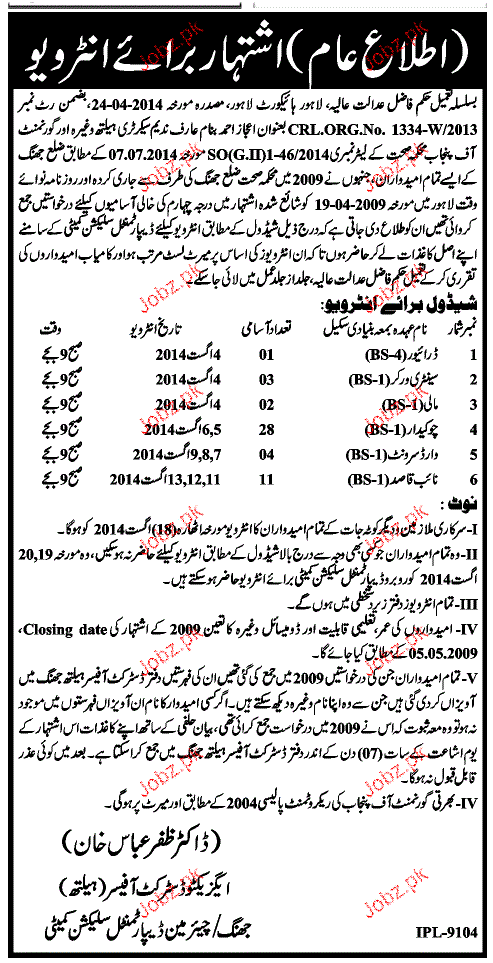 (اطلاع عام) اشتہار برائے انٹرویو
بسلسلہ تعمیل حکم فاضل عدالت عالیہ، لاہور ہائیکورٹ لاہور، مصدرہ مورخہ 24-04-2014، بضمن رٹ نمبر
CRL.ORG.No. 1334-W/2013 بعنوان اعجاز احمد بنام عارف ندیم سیکرٹری ہیلتھ وغیرہ اور گورنمنٹ
آف پنجاب محکمہ صحت کے لیٹر نمبری SO(G.II)1-46/2014 مورخہ 07.07.2014 کے مطابق ضلع جھنگ
کے ایسے تمام امیدواران، جنہوں نے 2009 میں محکمہ صحت ضلع جھنگ کی طرف سے جاری کردہ اور روزنامہ نوائے
وقت لاہور میں مورخہ 19-04-2009 کو شائع شدہ اشتہار میں درجہ چہارم کی خالی آسامیوں کیلئے درخواستیں جمع
کروائی تھیں ان کو اطلاع دی جاتی ہے کہ درج ذیل شیڈول کے مطابق انٹرویو کیلئے ڈیپارٹمنٹل سلیکشن کمیٹی کے سامنے
اپنے اصل کاغذات لے کر حاضر ہوں تاکہ ان انٹرویوز کی اساس پر میرٹ لسٹ مرتب ہو اور کامیاب امیدواروں کی
تقرری کرکے تعمیل حکم فاضل عدالت عالیہ، جلد از جلد عمل میں لائی جاسکے۔
شیڈول برائے انٹرویو:
نمبر شمار نام عہدہ بمعہ بنیادی سکیل تعداد آسامی تاریخ انٹرویو وقت
1 ڈرائیور (BS-4) 01 4 اگست 2014 صبح 9 بجے
2 سینٹری ورکر (BS-1) 03 4 اگست 2014 صبح 9 بجے
3 مالی (BS-1) 02 4 اگست 2014 صبح 9 بجے
4 چوکیدار (BS-1) 28 6,5 اگست 2014 صبح 9 بجے
5 وارڈ سرونٹ (BS-1) 04 9,8,7 اگست 2014 صبح 9 بجے
6 نائب قاصد (BS-1) 11 13,12,11 اگست 2014 صبح 9 بجے
نوٹ:
I- سرکاری ملازمین و دیگر کوٹہ جات کے تمام امیدواران کا انٹرویو مورخہ اٹھارہ (18) اگست 2014 کو ہوگا۔
II- وہ تمام امیدواران جو کسی بھی وجہ سے درج بالا شیڈول کے مطابق انٹرویو کیلئے حاضر نہ ہوسکیں، وہ مورخہ 20,19
اگست 2014 کو روبرو ڈیپارٹمنٹل سلیکشن کمیٹی برائے انٹرویو حاضر ہوسکتے ہیں۔
III- تمام انٹرویوز دفتر زیر دستخطی میں ہوں گے۔
IV- امیدواروں کی عمر، تعلیمی قابلیت اور ڈومیسائل وغیرہ کا تعین 2009 کے اشتہار کی Closing date،
05.05.2009 کے مطابق کیا جائے گا۔
V- تمام امیدواران جن کی درخواستیں 2009 میں جمع کی گئی تھیں ان کی فہرستیں دفتر ڈسٹرکٹ آفیسر ہیلتھ جھنگ میں
آویزاں کردی گئی ہیں جن سے وہ اپنا نام وغیرہ دیکھ سکتے ہیں۔ اگر کسی امیدوار کا نام ان آویزاں فہرستوں میں موجود
نہ ہو تو وہ معہ ثبوت کہ اس نے 2009 میں درخواست جمع کرائی تھی، بیان حلفی کے ساتھ اپنے کاغذات اس اشتہار کے
یوم اشاعت کے سات (07) دن کے اندر دفتر ڈسٹرکٹ آفیسر ہیلتھ جھنگ میں جمع کراسکتا ہے۔ بعد میں کوئی عذر
قابل قبول نہ ہوگا۔
IV- بھرتی گورنمنٹ آف پنجاب کی ریکروٹمنٹ پالیسی 2004 کے مطابق اور میرٹ پر ہوگی۔
(ڈاکٹر ظفر عباس خان)
ایگزیکٹو ڈسٹرکٹ آفیسر (ہیلتھ)
جھنگ/چیئرمین ڈیپارٹمنٹل سلیکشن کمیٹی
IPL-9104
Jobz.pk